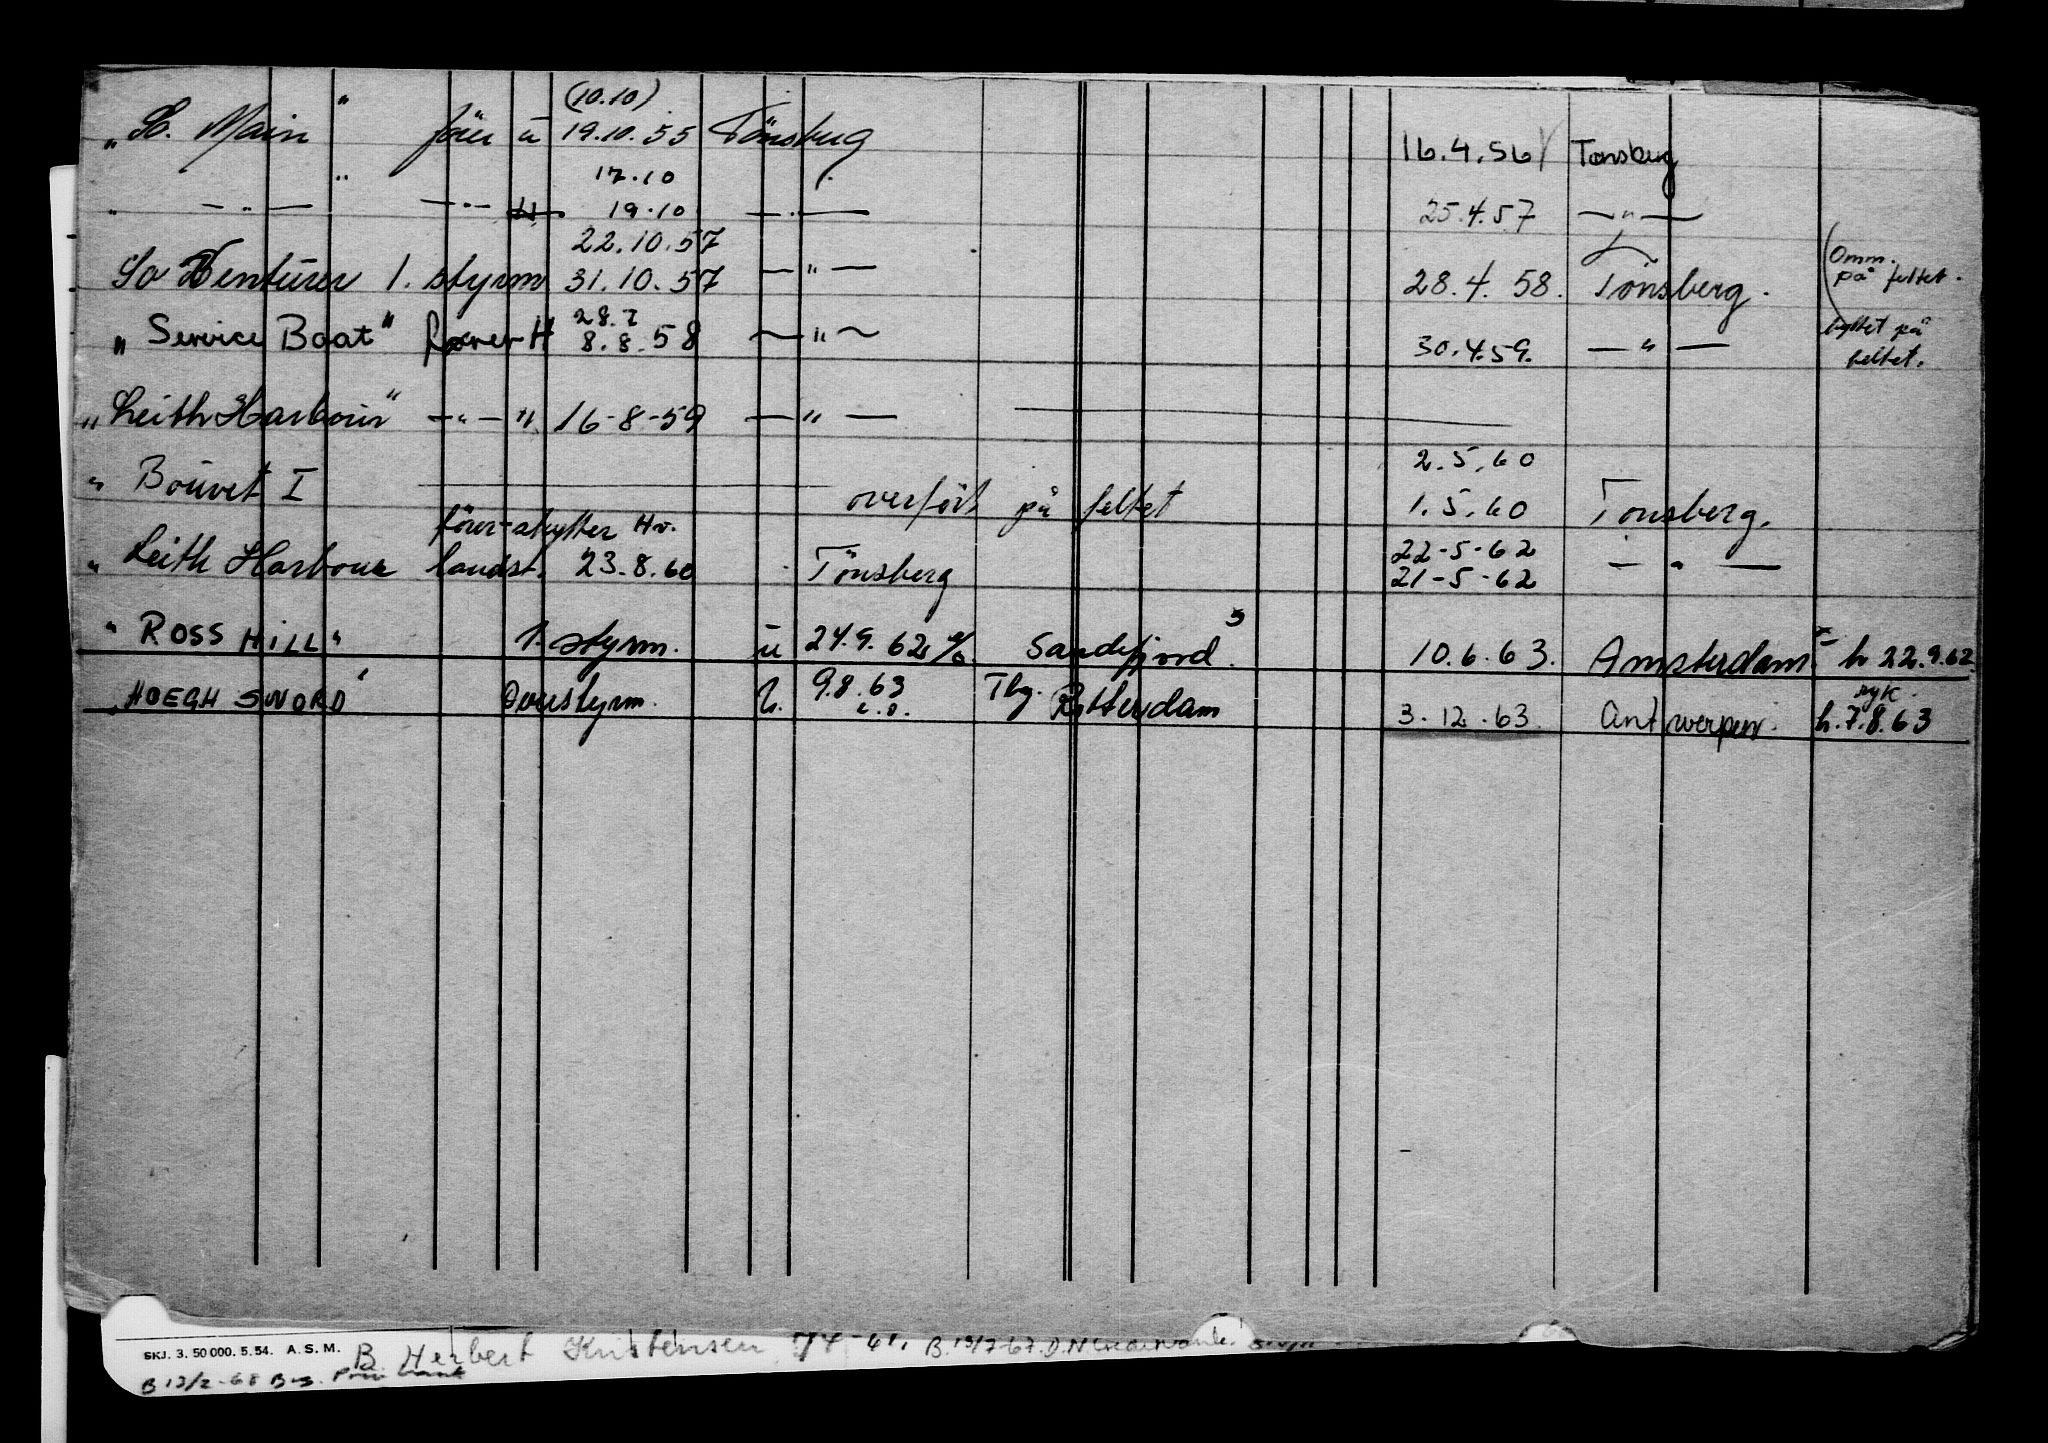 (10.10)
"So. Main" fører u 19.10.55 Tönsberg 16.4.56 Tønsberg
17.10
" — " — " — " — H 19.10 — " — 25.4.57 — " —
22.10.57
So Venturer 1. styrm 31.10.57 — " — 28.4.58. Tönsberg. (Omm. på feltet.
28.7
"Service Boat" fører H 8.8.58 — " — 30.4.59. — " — byttet på feltet.
"Leith Harbour" — " — H 16-8-59 — " —
2.5.60
" Bouvet I overfört på feltet 1.5.60 Tönsberg.
förer-skytter Hv. 22-5-62
" Leith Harbour landst. 23.8.60 Tönsberg 21-5-62 — " —
"ROSS HILL" 1. styrm. u 24.9.62 Sandefjord. 10.6.63. Amsterdam h 22.9.62
"HOEGH SWORD" Overstyrm. h. 9.8.63 Tbg. Rotterdam 3.12.63. Antwerpen. h. 7.8.63
SKJ. 3. 50 000. 5. 54. A. S. M. B. Herbert Kristensen B. 19/7-67.
B 13/2-68